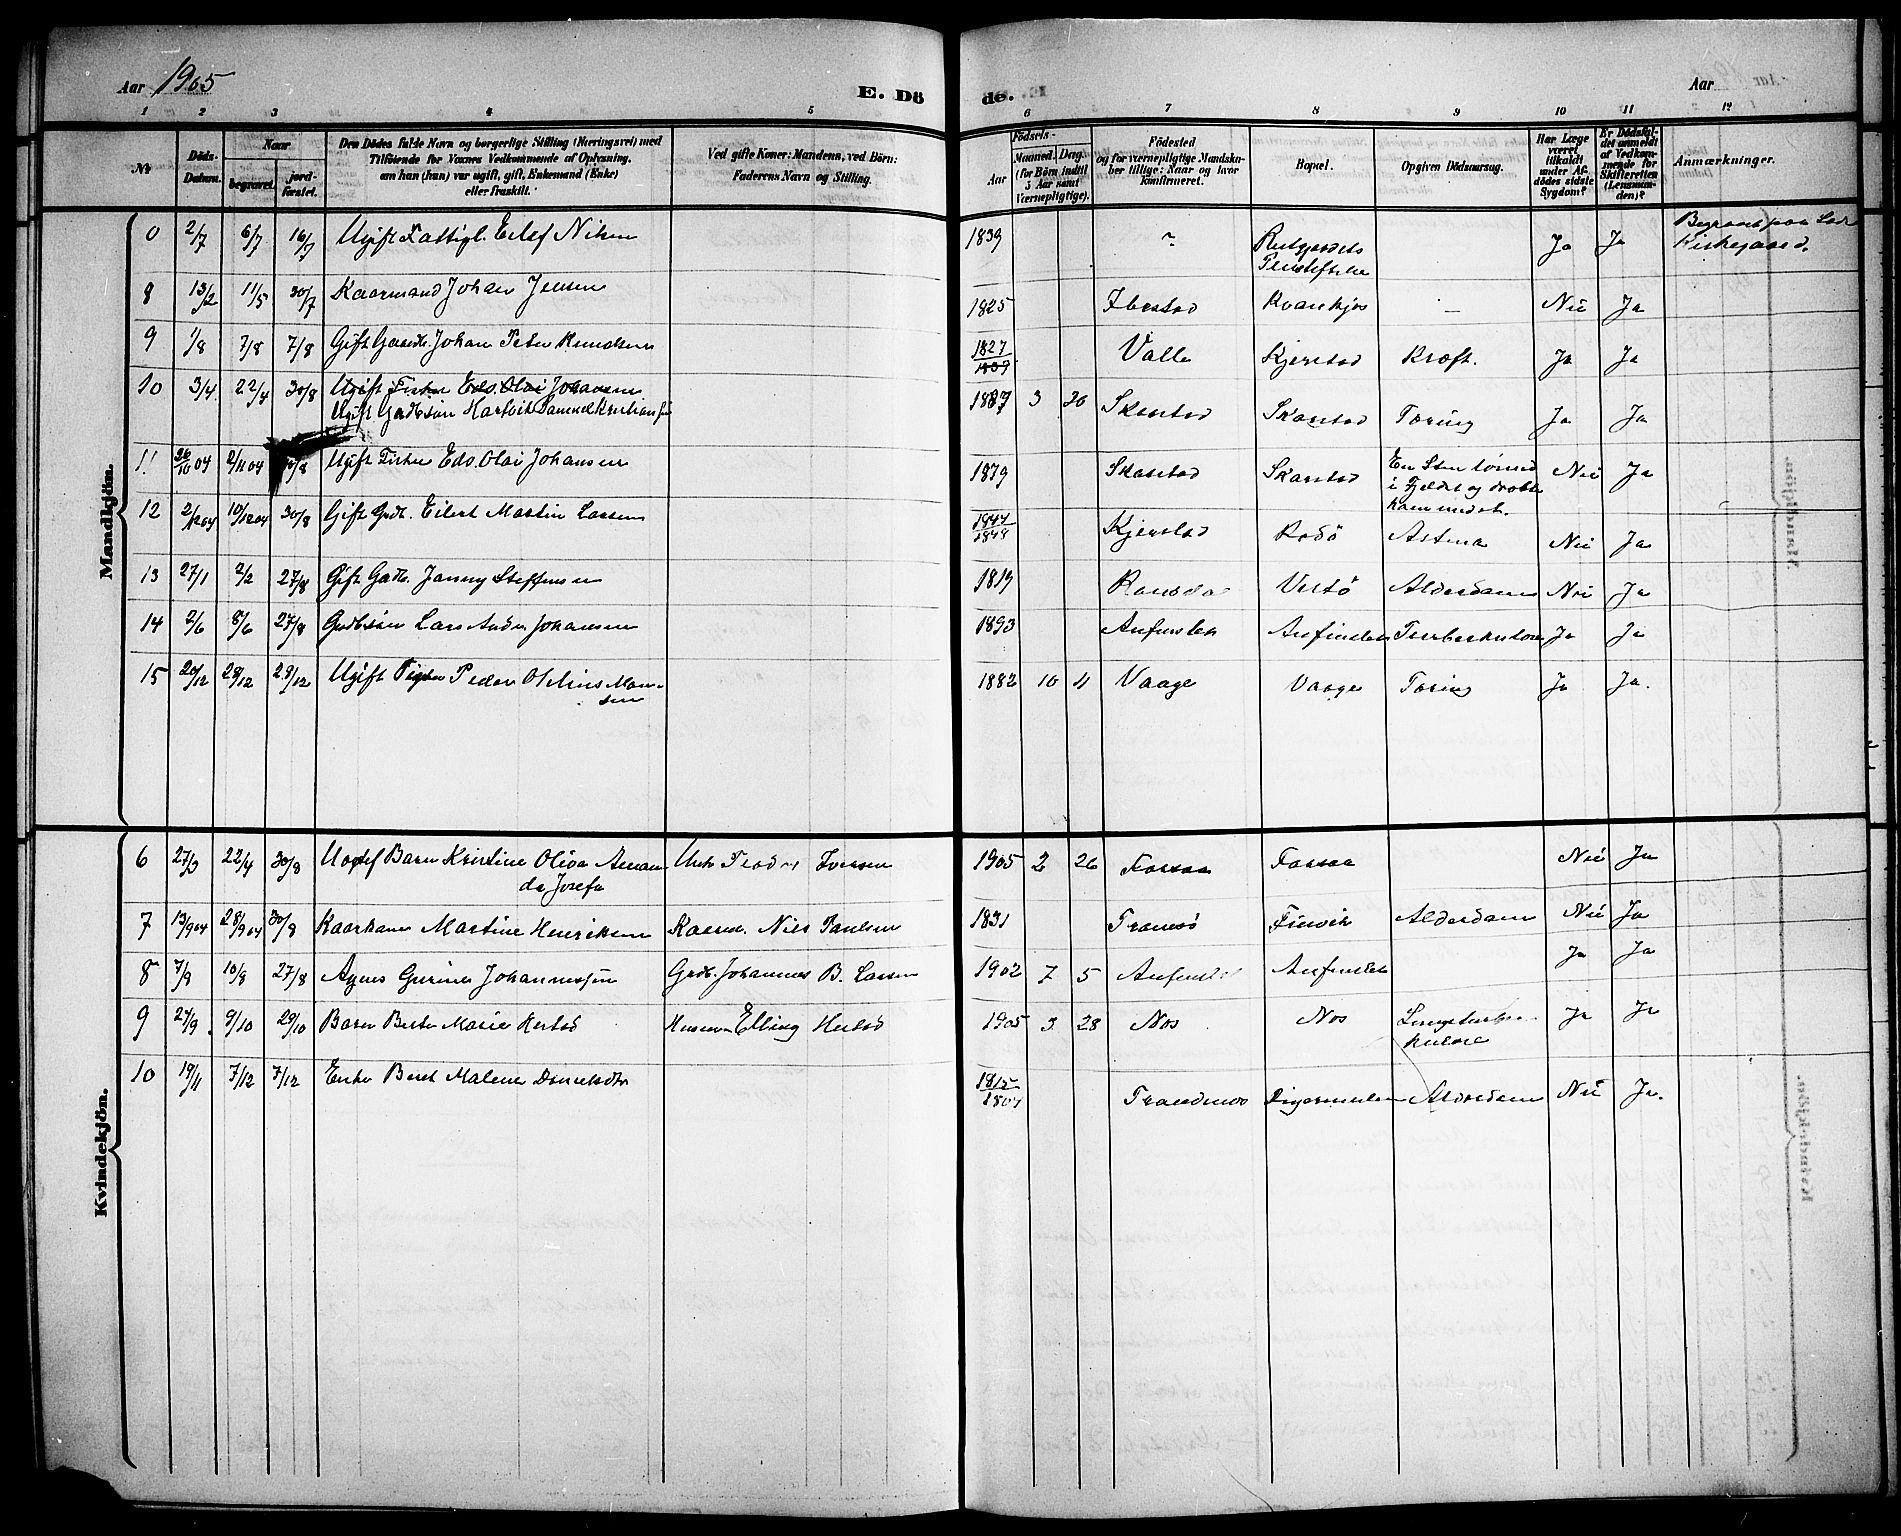 Aar 1905
E. Dö
de.
Aar
1 2 3 4 5 6 7 8 9 10 11 12
Nr
Döds-
Datum.
Naar
begravet.
jord-
fæstet.
Den Dödes fulde Navn og borgerlige Stilling (Næringsvei) med
Tilföiende for Voxnes Vedkommende af Oplysning,
om han (hun) var ugift, gift, Enkemand (Enke)
eller fraskilt.
Ved gifte Koner: Mandens, ved Börn:
Faderens Navn og Stilling.
Födsels-
Aar
Maaned. Dag.
(for Börn indtil
5 Aar samt
Værnepligtige).
Födested
og for værnepligtige Mandska-
ber tillige: Naar og hvor
konfirmeret.
Bopæl.
Opgiven Dödsaarsag.
Har Læge
været
tilkaldt
under Af-
dödes sidste
Sygdom?
Er Dödsfal-
det anmeldt
af Vedkom-
mende for
Skifteretten
(Lensman-
den)?
Anmærkninger.
Mandkjön.
0 2/7 6/7 16/7 Ugift Fattigl. Eilef Nilsen 1839 Ja Ja Begravet paa
Kirkegaard.
8 13/2 11/5 30/7 Kaarmand Johan Jensen 1825 Ibestad Kvankjos — Nei Ja
9 1/8 7/8 7/8 Gift Gaardb. Johan Peter Knudsen 1827/1809 Valle Kjerstad Kræft. Ja Ja
10 3/4 22/4 30/8 Ugift Fisker Eds. Olai Johansen
Ugift Grdbsøn Hartvik Samuel Kristiansen 1887 3 20 Skarstad Skarstad Tæring Ja Ja
11 26/10 04 2/11 04 30/8 Ugift Fisker Eds. Olai Johansen 1879 Skarstad Skarstad En Sten løsned
i Fjeldet og dræbte
ham med et. Nei Ja
12 2/12 04 10/12 04 30/8 Gift Grdb. Eilert Martin Larsen 1847/1848 Kjerstad Rodø Astma Nei Ja
13 27/1 2/2 27/8 Gift Gadb. Janny Steffensen 1819 Ramsda Vestö Alderdom Nei Ja
14 2/6 8/6 27/8 Grdbsøn Lars Andr. Johansen 1893 Anfinslet Anfinslet Tuberkulose Ja Ja
15 20/12 28/12 28/12 Ugift Fisker Peder Olelius Mon-
sen 1882 10 4 Vaage Vaage Tæring Ja Ja.
Kvindekjön.
6 27/3 22/4 30/8 Uægtef Barn Kristine Oliva Aman-
da Josefa Iversen 1905 2 26 Forsaa Forsaa Nei Ja
7 13/9 04 28/9 04 30/8 Kaarkone Martine Henriksen Kaarm. Nils Paulsen 1831 Tranøsö Finvik Alderdom Nei Ja
8 7/8 10/8 27/8 Agnes Gurine Johannessen Grdb. Johannes B. Larsen 1902 7 5 Anfinslet Anfinslet Ja Ja
9 24/9 9/10 29/10 Barn Berta Marie Herstad Husmm Elling Herstad 1905 3 28 Nos Nos Ja Ja
10 19/11 7/12 7/12 Enke Beret Malene Danielsdtr 1815/1807 Trondenes Digermulen Alderdom Nei Ja.